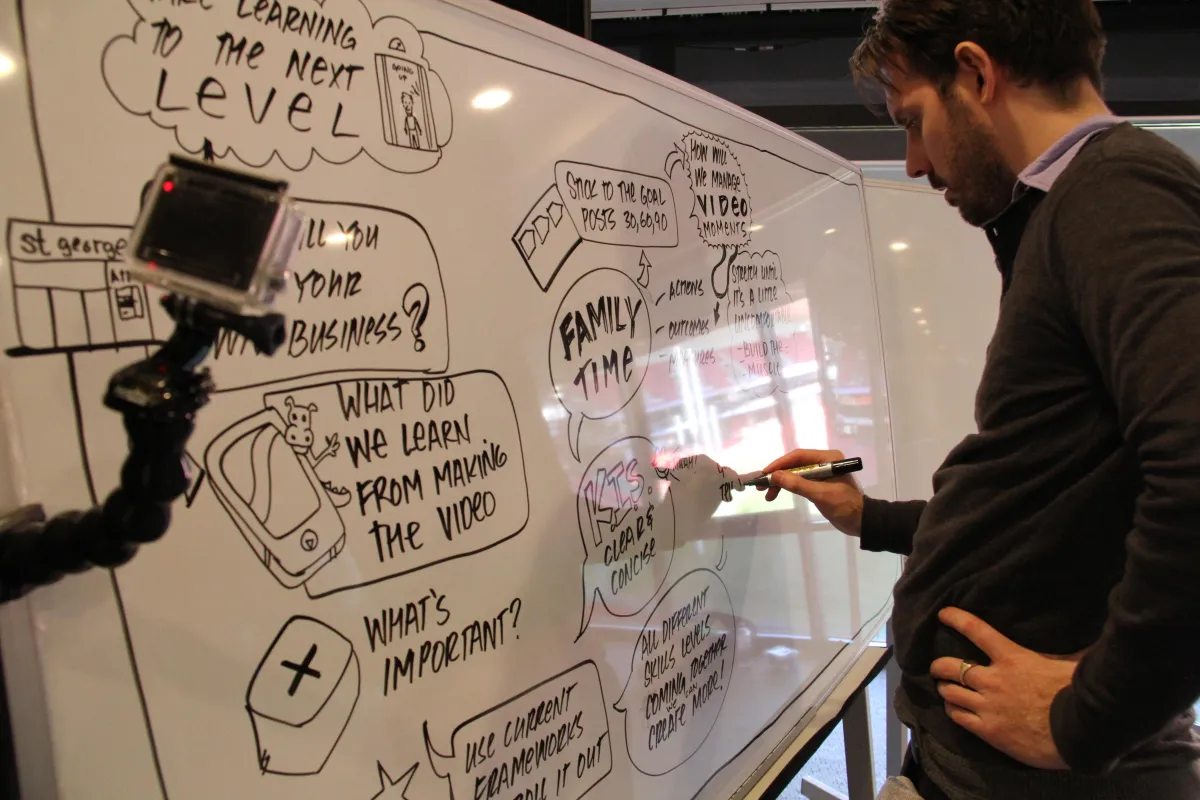 LEARNING
TO THE NEXT
LEVEL
GOING
UP
St george
YOU
YOUR
BUSINESS?
WHAT DID
WE LEARN
FROM MAKING
THE VIDEO
WHAT'S
IMPORTANT?
USE CURRENT
FRAMEWORKS
IT OUT
STICK TO THE GOAL
POSTS 30,60,90
HOW WILL
WE MANAGE
VIDEO
MOMENTS
FAMILY
TIME
- ACTIONS
- OUTCOMES
STRETCH UNTIL
IT'S A LITTLE
- BUILD THE
MUSCLE
KIS.
CLEAR &
CONCISE
ALL DIFFERENT
SKILLS LEVELS
COMING TOGETHER
WE CAN
CREATE MORE!